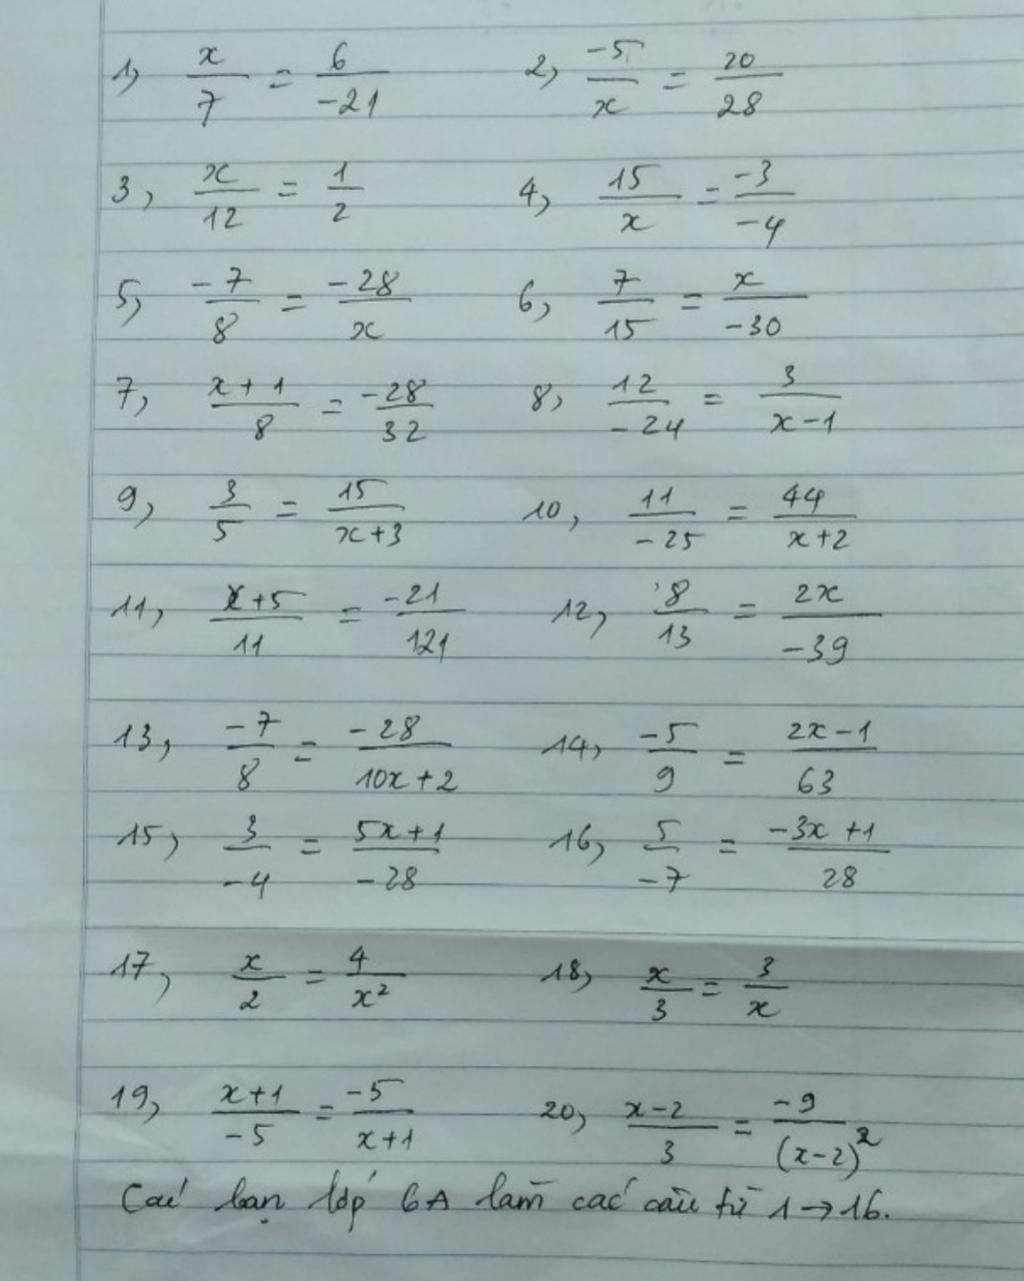 1, x/7 = 6/-21 2, -5/x = 20/28
3, x/12 = 1/2 4, 15/x = -3/-4
5, -7/8 = -28/x 6, 7/15 = x/-30
7, x+1/8 = -28/32 8, 12/-24 = 3/x-1
9, 3/5 = 15/x+3 10, 11/-25 = 44/x+2
11, x+5/11 = -21/121 12, 8/13 = 2x/-39
13, -7/8 = -28/10x+2 14, -5/9 = 2x-1/63
15, 3/-4 = 5x+1/-28 16, 5/-7 = -3x+1/28
17, x/2 = 4/x² 18, x/3 = 3/x
19, x+1/-5 = -5/x+1 20, x-2/3 = -9/(x-2)²
Các bạn lớp 6A làm các câu từ 1→16.